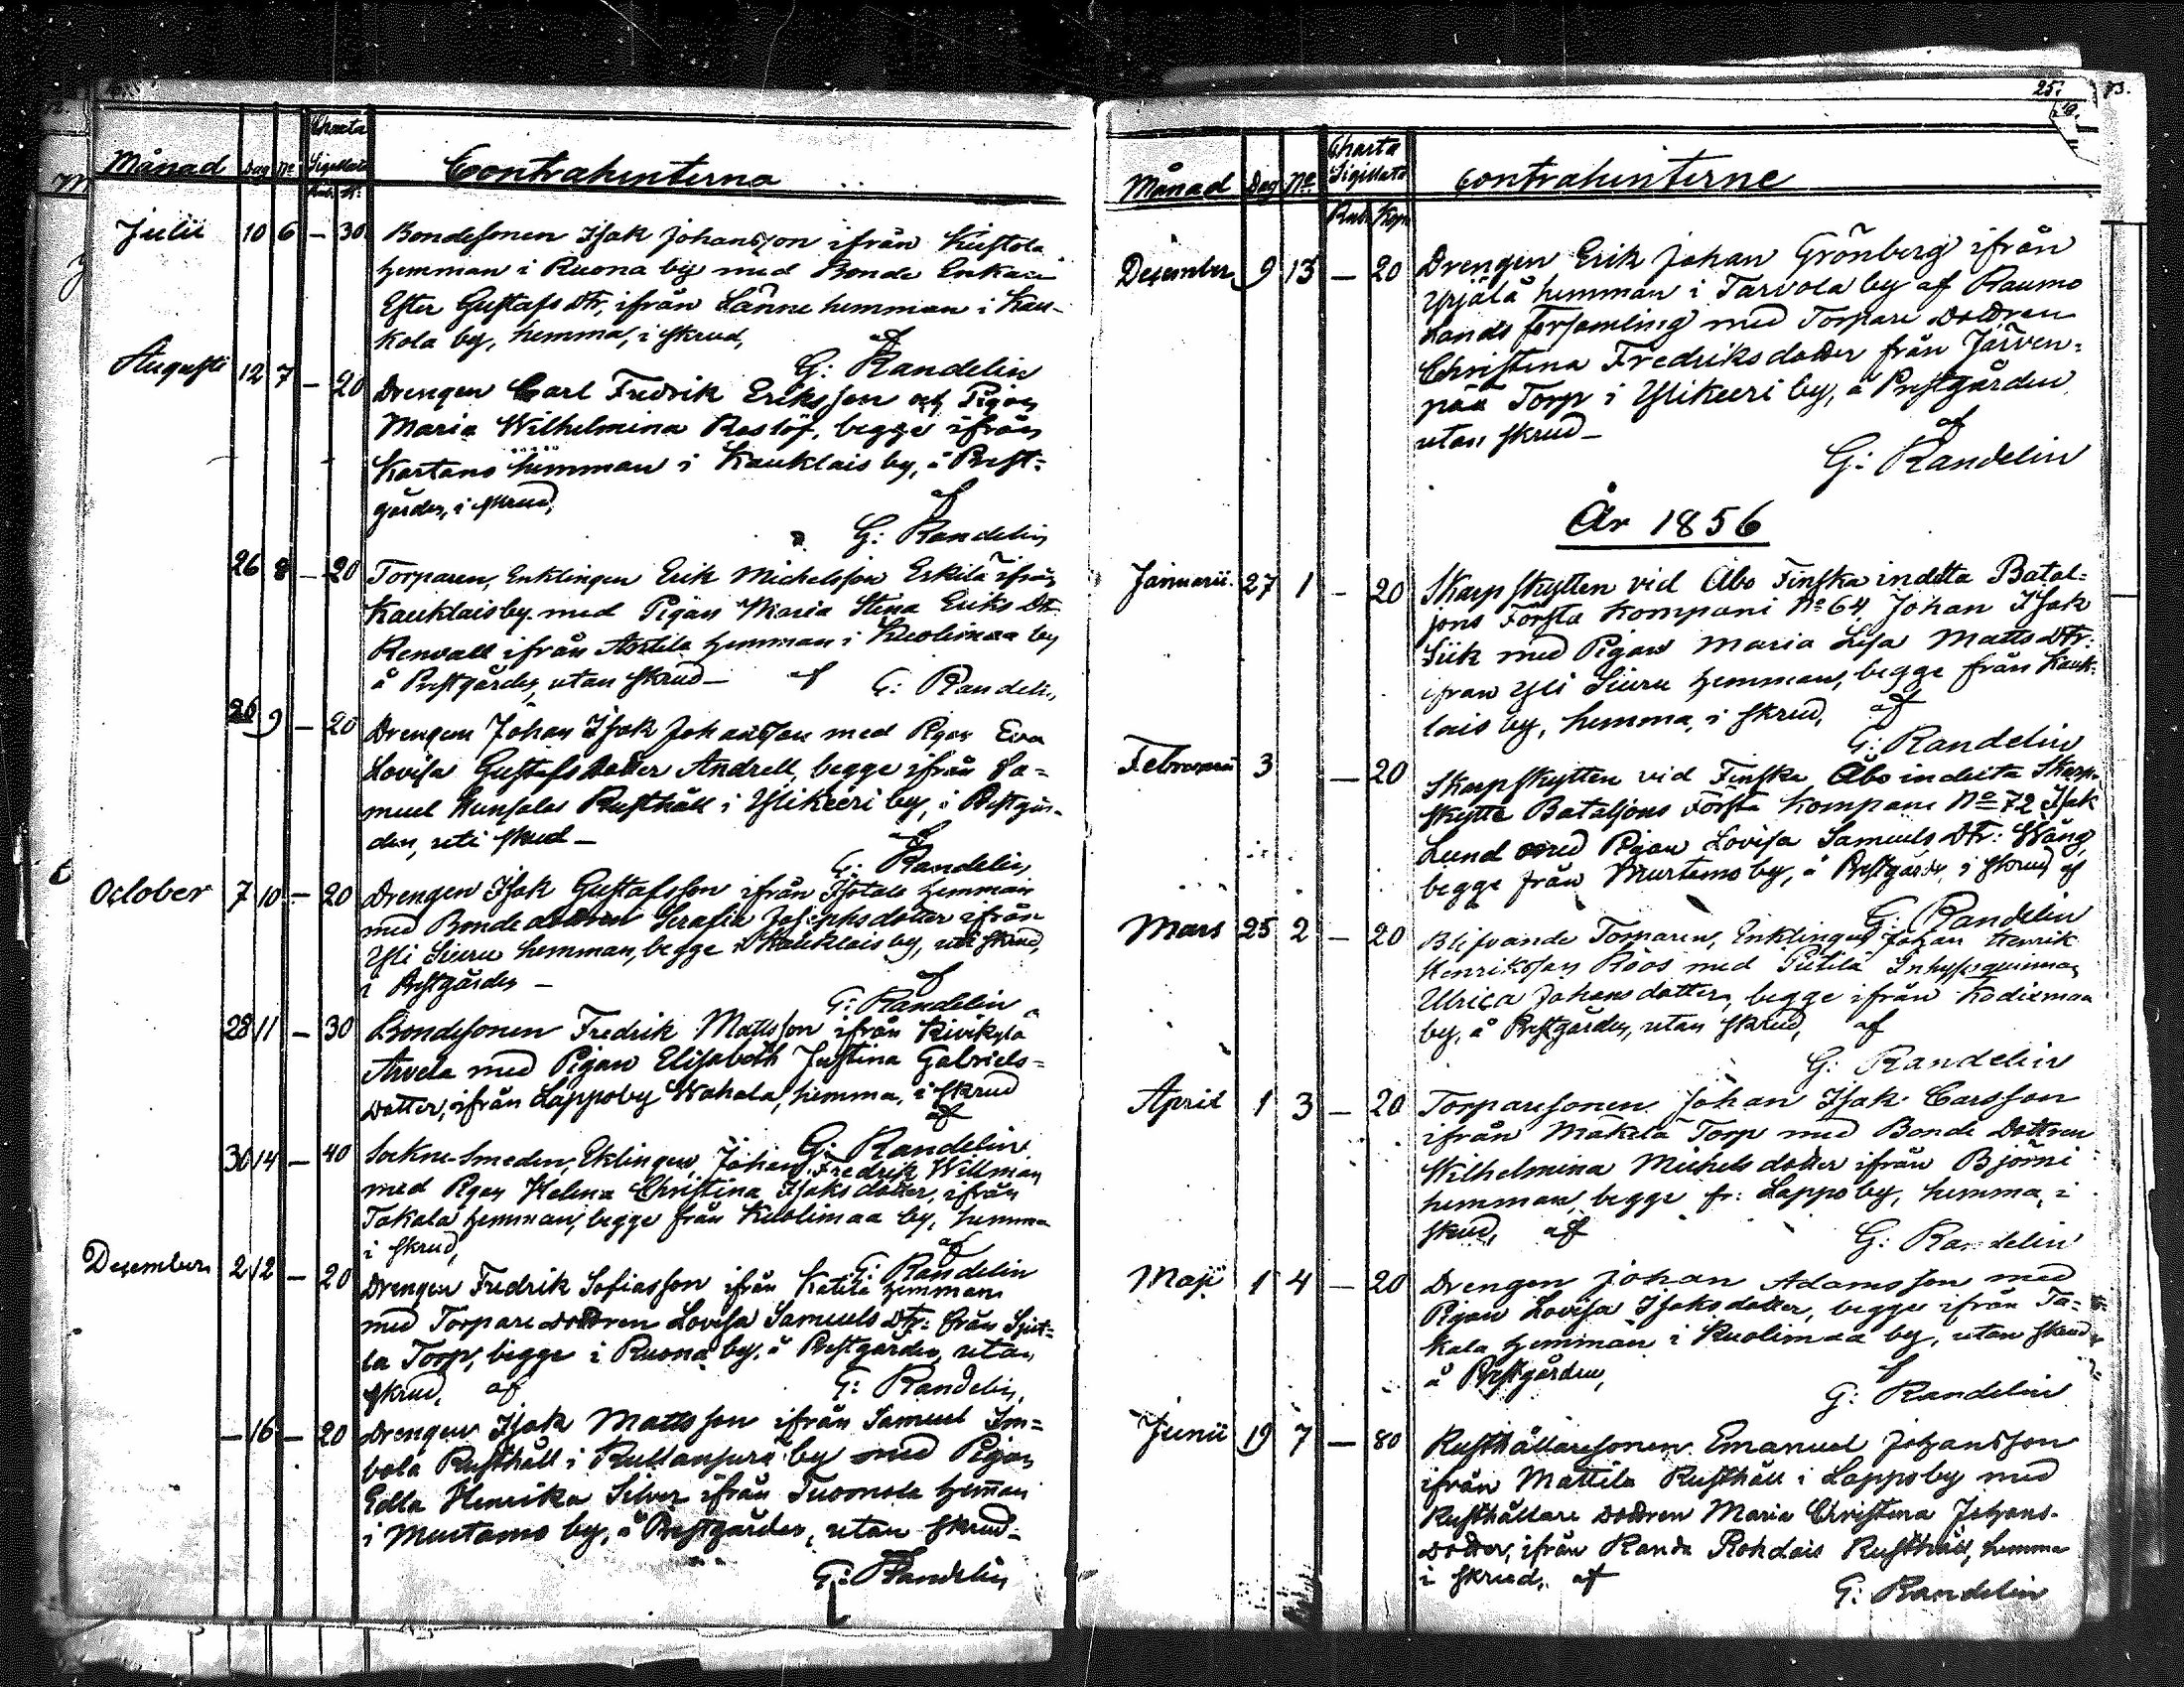 Månad Dag No Charta Sigillata Contrahenterna
Rub. K:
Julii 10 6 – 30 Bondesonen Isak Johansson ifrån Kustola
hemman i Ruona by med Bonde Enkan
Ester Gustafs Dtr, ifrån Länne hemman i Kau-
kola by, hemma, i skrud, af
G: Randelin
Augusti 12 7 – 20 Drengen Carl Fredrik Eriksson och Pigan
Maria Wilhelmina Reslöf, begge ifrån
Kartano hemman i Kauklais by, å Prest-
gården, i skrud, af
G: Randelin
26 8 – 20 Torparen, Enklingen Erik Michelsson Eskilä ifrån
Kauklaisby med Pigan Maria Stina Eriks Dtr
Renvall ifrån Anttila hemman i Kuolimaa by
å Prestgården, utan skrud – af G: Randelin
26 9 – 20 Drengen Johan Isak Johansson med Pigan Eva
Lovisa Gustafs dotter Andrell, begge ifrån Sa-
muel Hunsala Rusthåll i Ylikeeri by, i Prestgår-
den, uti skrud – af
G: Randelin
October 7 10 – 20 Drengen Isak Gustafsson ifrån Isotalo hemman
med Bonde dottren Serafia Josephsdotter ifrån
Yli Siuru hemman, begge i Kauklais by, uti skrud,
i Prestgården – af
G: Randelin
28 11 – 30 Bondesonen Fredrik Mattsson ifrån Kivikylä
Arvela med Pigan Elisabeth Justina Gabriels-
dotter, ifrån Lappoby Wahala, hemma, i skrud
af
G: Randelin
30 14 – 40 Sockne-Smeden, Eklingen Johan Fredrik Willman
med Pigan Helena Christina Isaksdotter, ifrån
Takala hemman, begge från Kuolimaa by, hemma
i skrud, af
G: Randelin
December 2 12 – 20 Drengen Fredrik Sofiasson ifrån Katila hemman
med Torpare dottren Lovisa Samuels Dtr: från
la Torp, begge i Ruona by, å Prestgården, utan
skrud, af G: Randelin
– 16 – 20 Drengen Isak Mattsson ifrån Samuel Im-
bola Rusthåll i Kullanperä by med Pigan
Edla Henrika Silver ifrån Tuomola hemman
i Murtamo by, å Prestgården, utan skrud –
G: Randelin
25.
Månad Dag No Charta Sigillata Contrahenterne
Rub. Kop
December 9 13 – 20 Drengen Erik Johan Grönberg ifrån
Yrjälä hemman i Tarvola by af Raumo
Lands församling med Torpare Dottren
Christina Fredriksdotter från Järven-
pää Torp i Ylikeeri by, å Prestgården
utan skrud – af
G: Randelin
År 1856
Januarii 27 1 – 20 Skarpskytten vid Åbo Finska indelta Batal-
jons Första Kompani No 64, Johan Isak
Siik med Pigan Maria Lisa Matts Dtr:
ifrån Yli Siuru hemman, begge från Kauk-
lais by, hemma, i skrud, af
G: Randelin
Februarii 3 – 20 Skarpskytten vid Finska Åbo indelta Skarp-
skytte Bataljons Första Kompani No 72 Isak
Lund med Pigan Lovisa Samuels Dtr: Wäng
begge från Murtamo by, å Prestgården, i skrud af
G: Randelin
Mars 25 2 – 20 Blifvande Torparen, Enklingen Johan Henrik
Henriksson Roos med Pietilä Inhysesquinnan
Ulrica Johansdotter, begge ifrån Kodiximaa
by, å Prestgården, utan skrud, af
G: Randelin
April 1 3 – 20 Torparesonen Johan Isak Carsson
ifrån Mäkelä Torp med Bonde Dottren
Wilhelmina Michelsdotter ifrån Björni
hemman, begge fr: Lappo by, hemma, i
skrud, af G: Randelin
Maji 1 4 – 20 Drengen Johan Adamsson med
Pigan Lovisa Isaksdotter, begge ifrån Ta-
kala hemman i Kuolimaa by, utan skrud
å Prestgården, af
G: Randelin
Junii 19 7 – 80 Rusthållaresonen Emanuel Johansson
ifrån Mattila Rusthåll i Lappoby med
Rusthållare Dottren Maria Christina Johans-
dotter, ifrån Randa Rohdais Rusthåll, hemma
i skrud, af G: Randelin